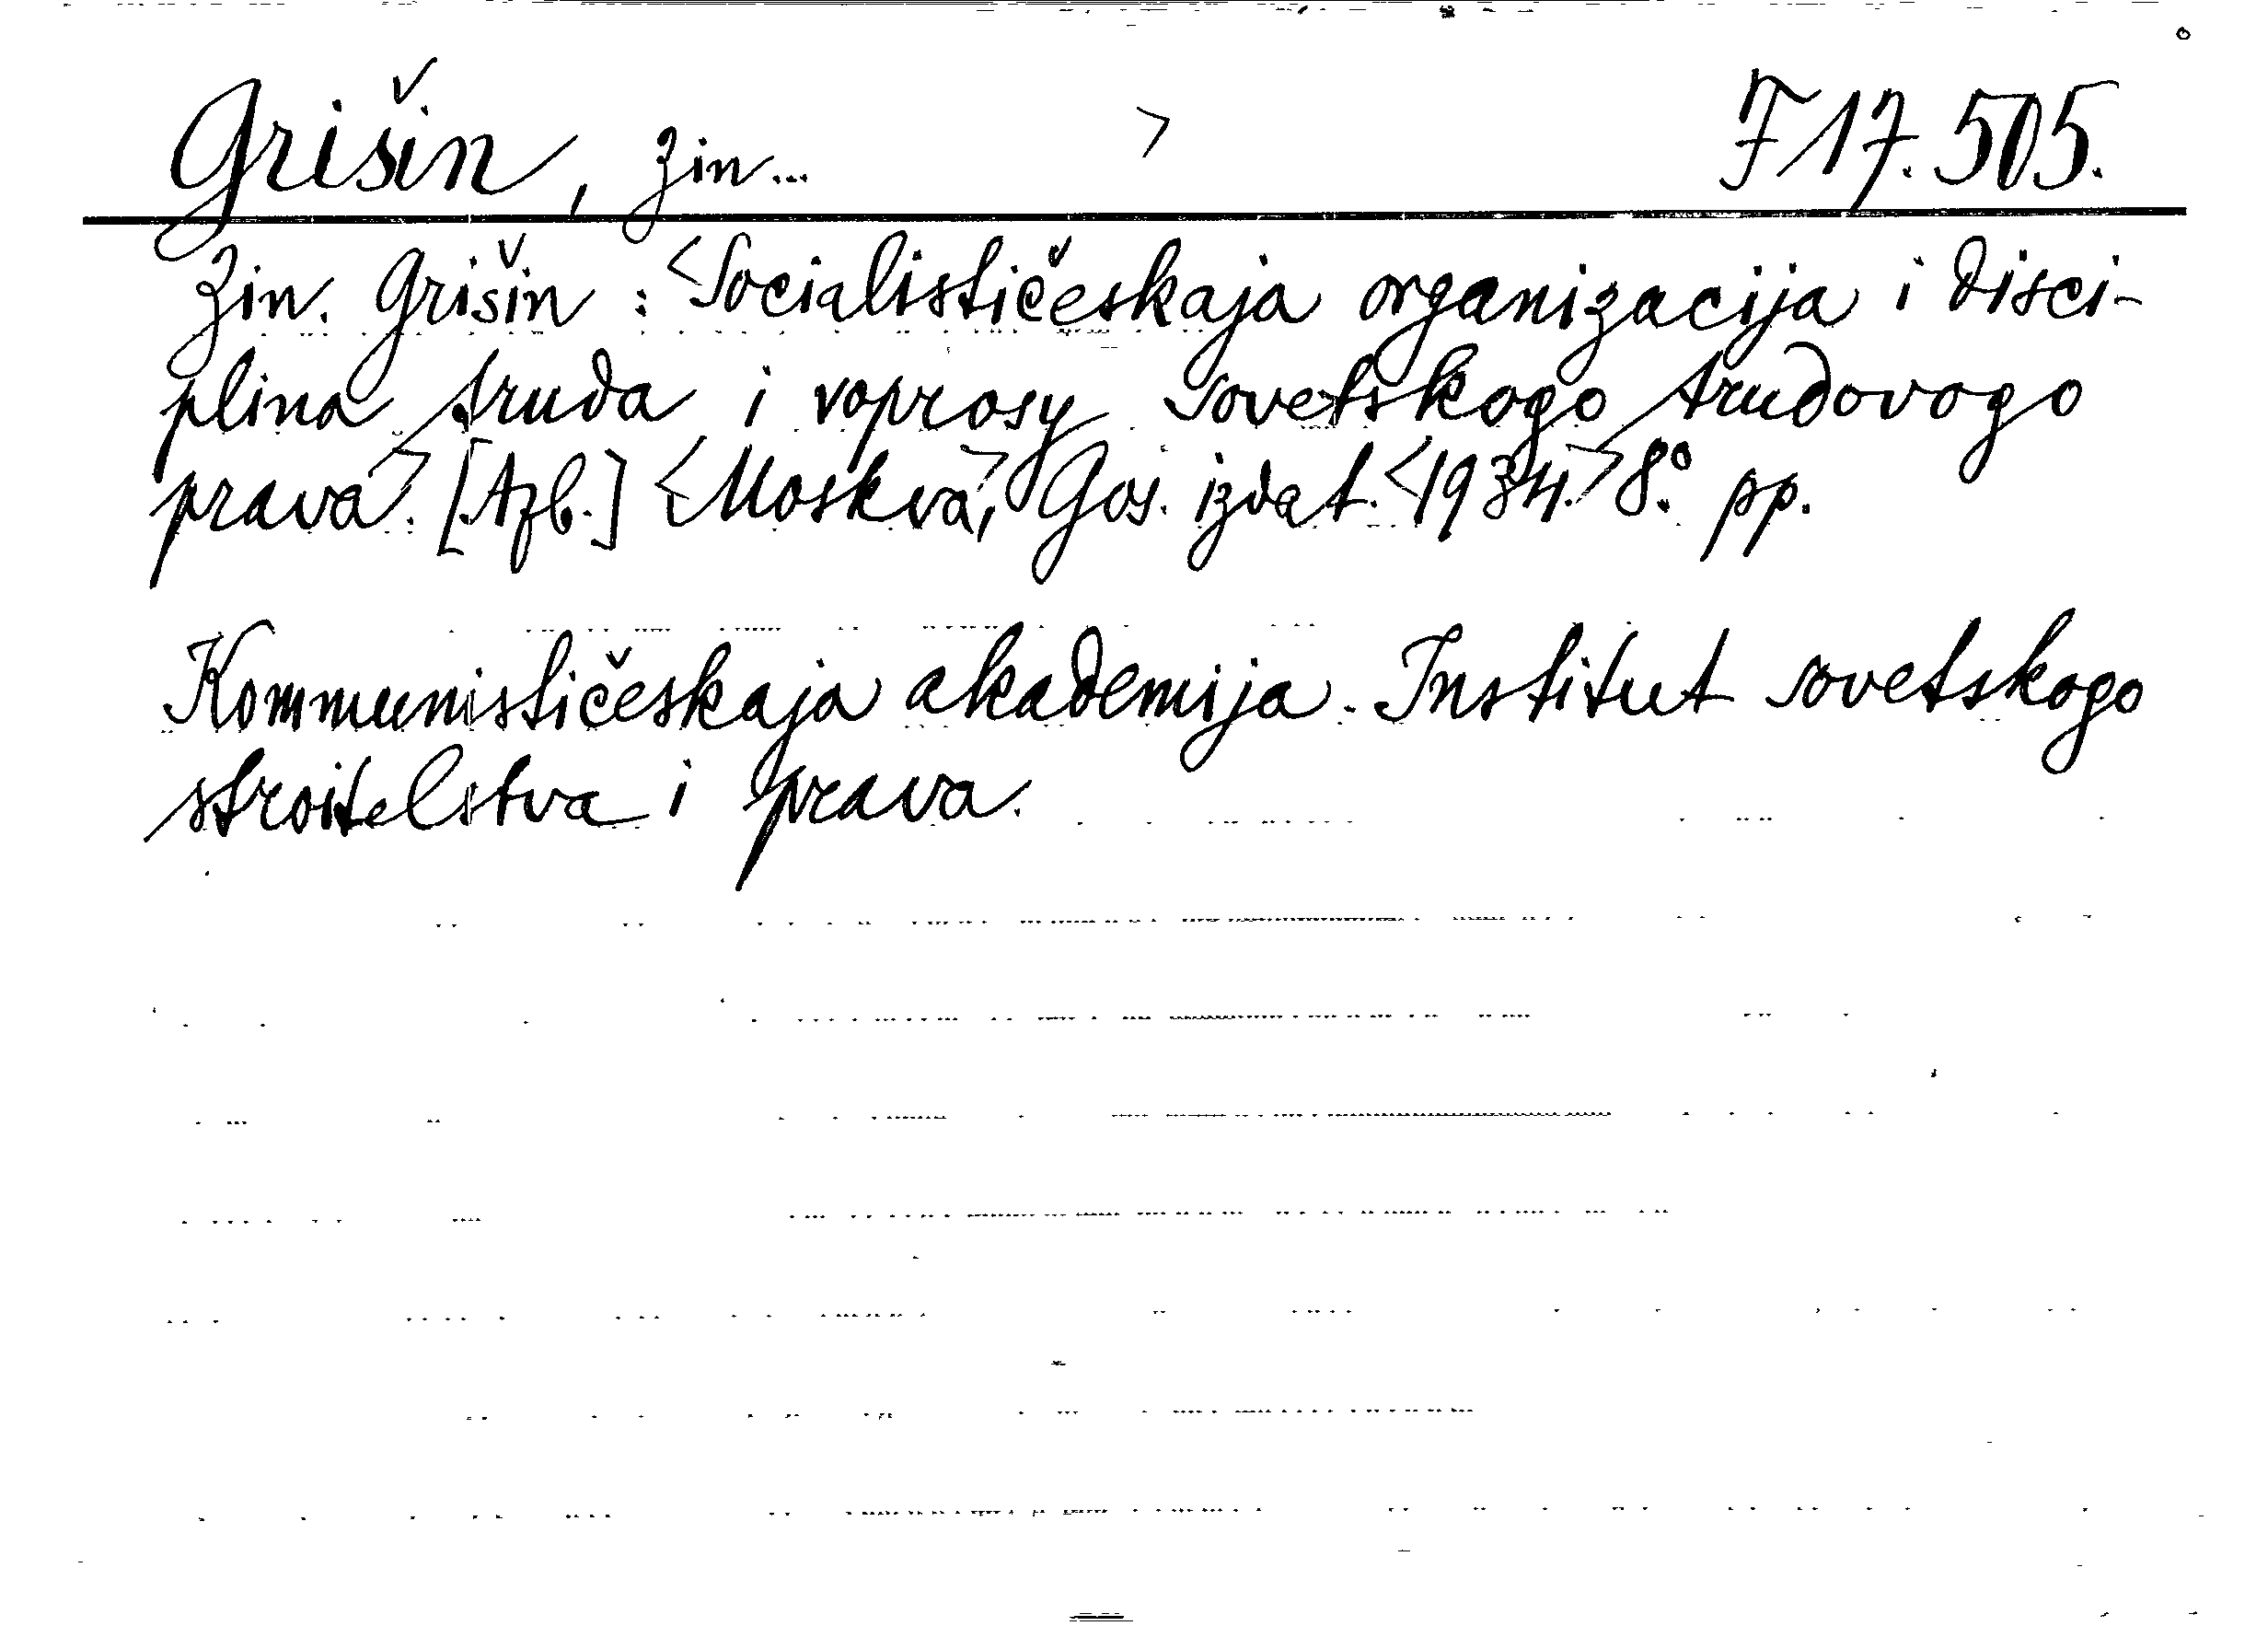 Grišin, Zin... > F 17.505.
Zin. Grišin : <Socialističeskaja organizacija i disci-
plina truda i voprosy sovetskogo trudovogo
prava>. [Azb.] <Moskva>, Gos. izdat. <1934.> 8.° pp.
Kommunističeskaja akademija. Institut sovetskogo
stroitelstva i prava.